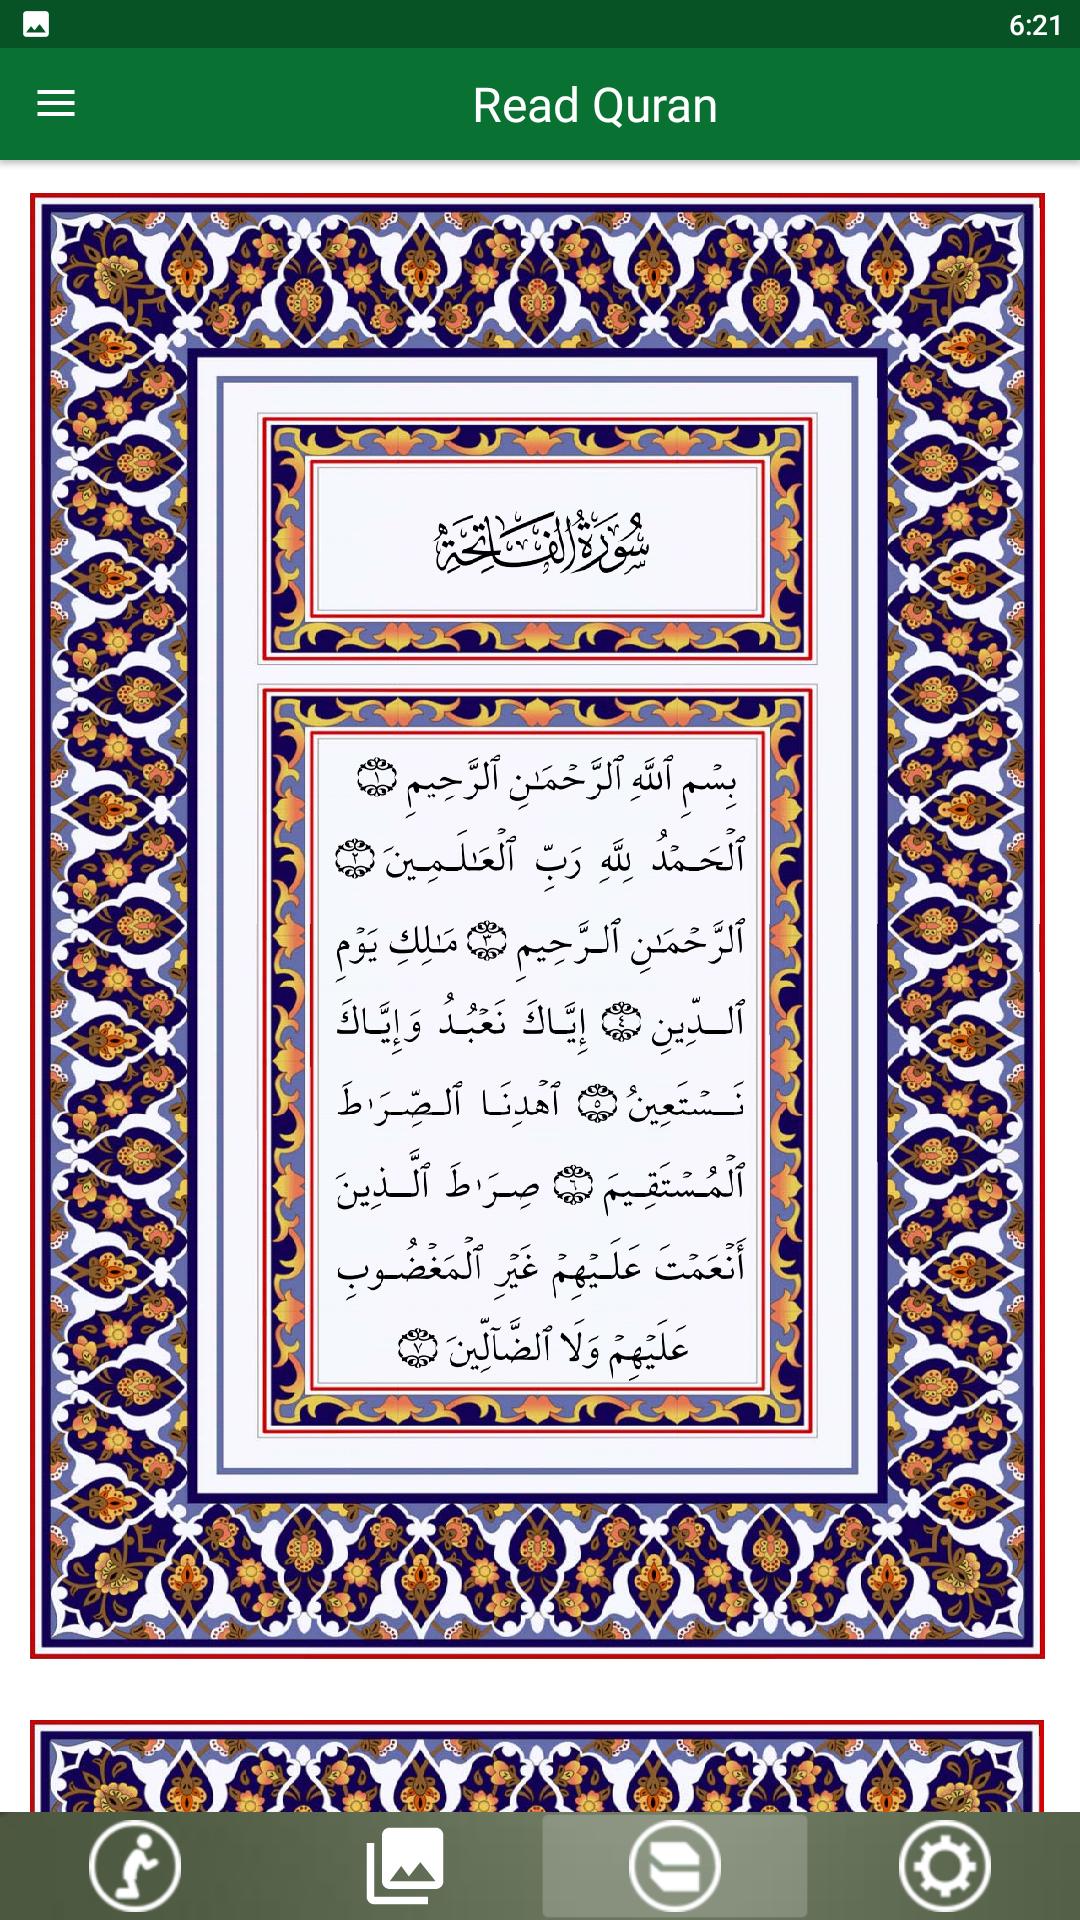 6:21
Read Quran
سُورَةُ الفَاتِحَةِ
بِسْمِ ٱللَّهِ ٱلرَّحْمَـٰنِ ٱلرَّحِيمِ ١
ٱلْحَمْدُ لِلَّهِ رَبِّ ٱلْعَـٰلَمِينَ ٢
ٱلرَّحْمَـٰنِ ٱلرَّحِيمِ ٣ مَـٰلِكِ يَوْمِ
ٱلدِّينِ ٤ إِيَّاكَ نَعْبُدُ وَإِيَّاكَ
نَسْتَعِينُ ٥ ٱهْدِنَا ٱلصِّرَٰطَ
ٱلْمُسْتَقِيمَ ٦ صِرَٰطَ ٱلَّذِينَ
أَنْعَمْتَ عَلَيْهِمْ غَيْرِ ٱلْمَغْضُوبِ
عَلَيْهِمْ وَلَا ٱلضَّآلِّينَ ٧